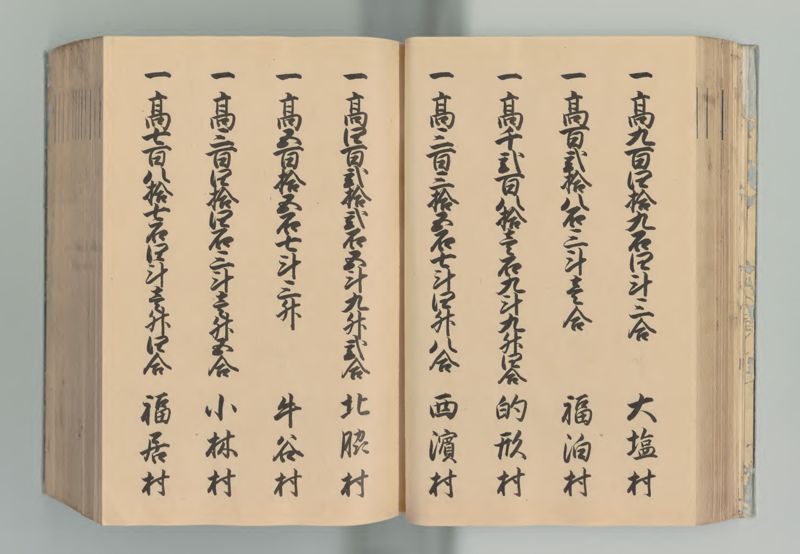 一高九百四拾九石四斗三合 大塩村
一高百弐拾八石三斗壱合 福泊村
一高千弐百八拾壱石九斗九升四合 的形村
一高三百三拾五石七斗四升八合 西濱村
一高四百弐拾弐石五斗九升弐合 北脇村
一高五百拾五石七斗三升 牛谷村
一高三百四拾四石三斗壱升五合 小林村
一高七百八拾七石四斗壱升四合 福居村